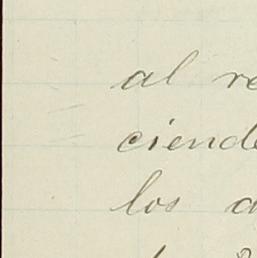 al re
ciende
los a